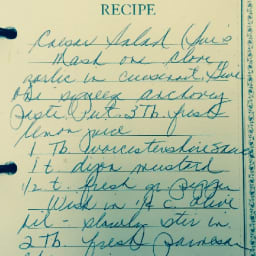 RECIPE
Caesar Salad
Mash one clove
garlic in cuisinart. Give
one squeeze anchovy
paste. Put 3 Tb. fresh
lemon juice
1 Tb. Worcestershire sauce
1 t. dijon mustard
1/2 t. fresh gr pepper
Wisk in 1/4 c. olive
oil - slowly stir in
2 Tb. fresh Parmesan